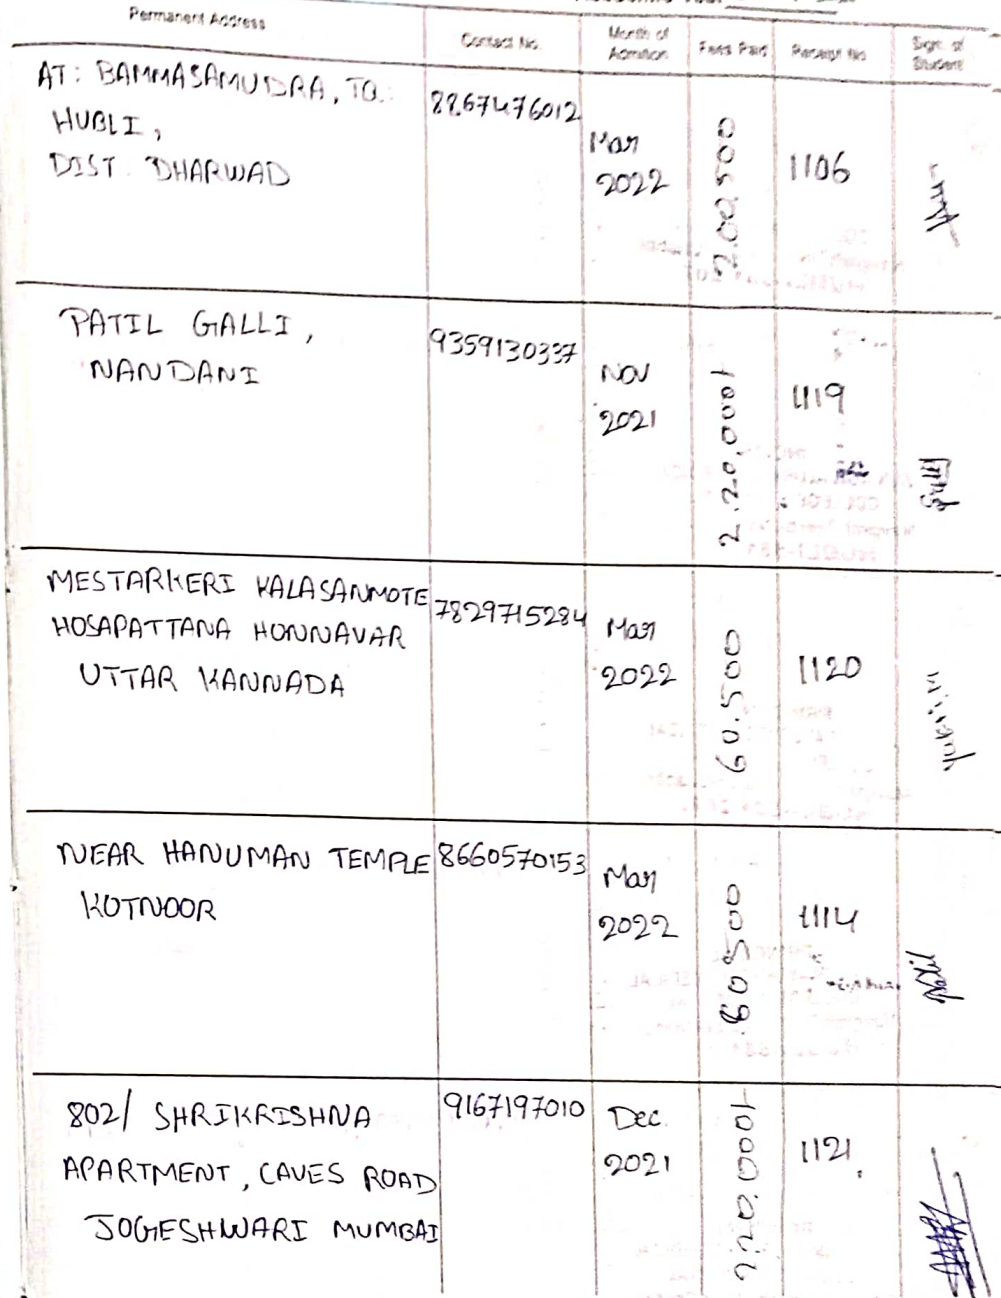 Permanent Address
Contact No.
Month of Admition
Fees Paid
Receipt No
Sign. of Student
AT: BAMMASAMUDRA, TQ:
HUBLI,
DIST. DHARWAD
8867476012
Mar
2022
2.00.500
1106
PATIL GALLI,
NANDANI
9359130337
Nov
2021
2.20,000/-
1119
Patil
MESTARKERI KALASANMOTE
HOSAPATTANA HONNAVAR
UTTAR KANNADA
7829715284
Mar
2022
60.500
1120
NEAR HANUMAN TEMPLE
KOTNOOR
8660570153
Mar
2022
80500
1114
Patil
802/ SHRIKRISHNA
APARTMENT, CAVES ROAD
JOGESHWARI MUMBAI
9167197010
Dec.
2021
2.20.000/-
1121